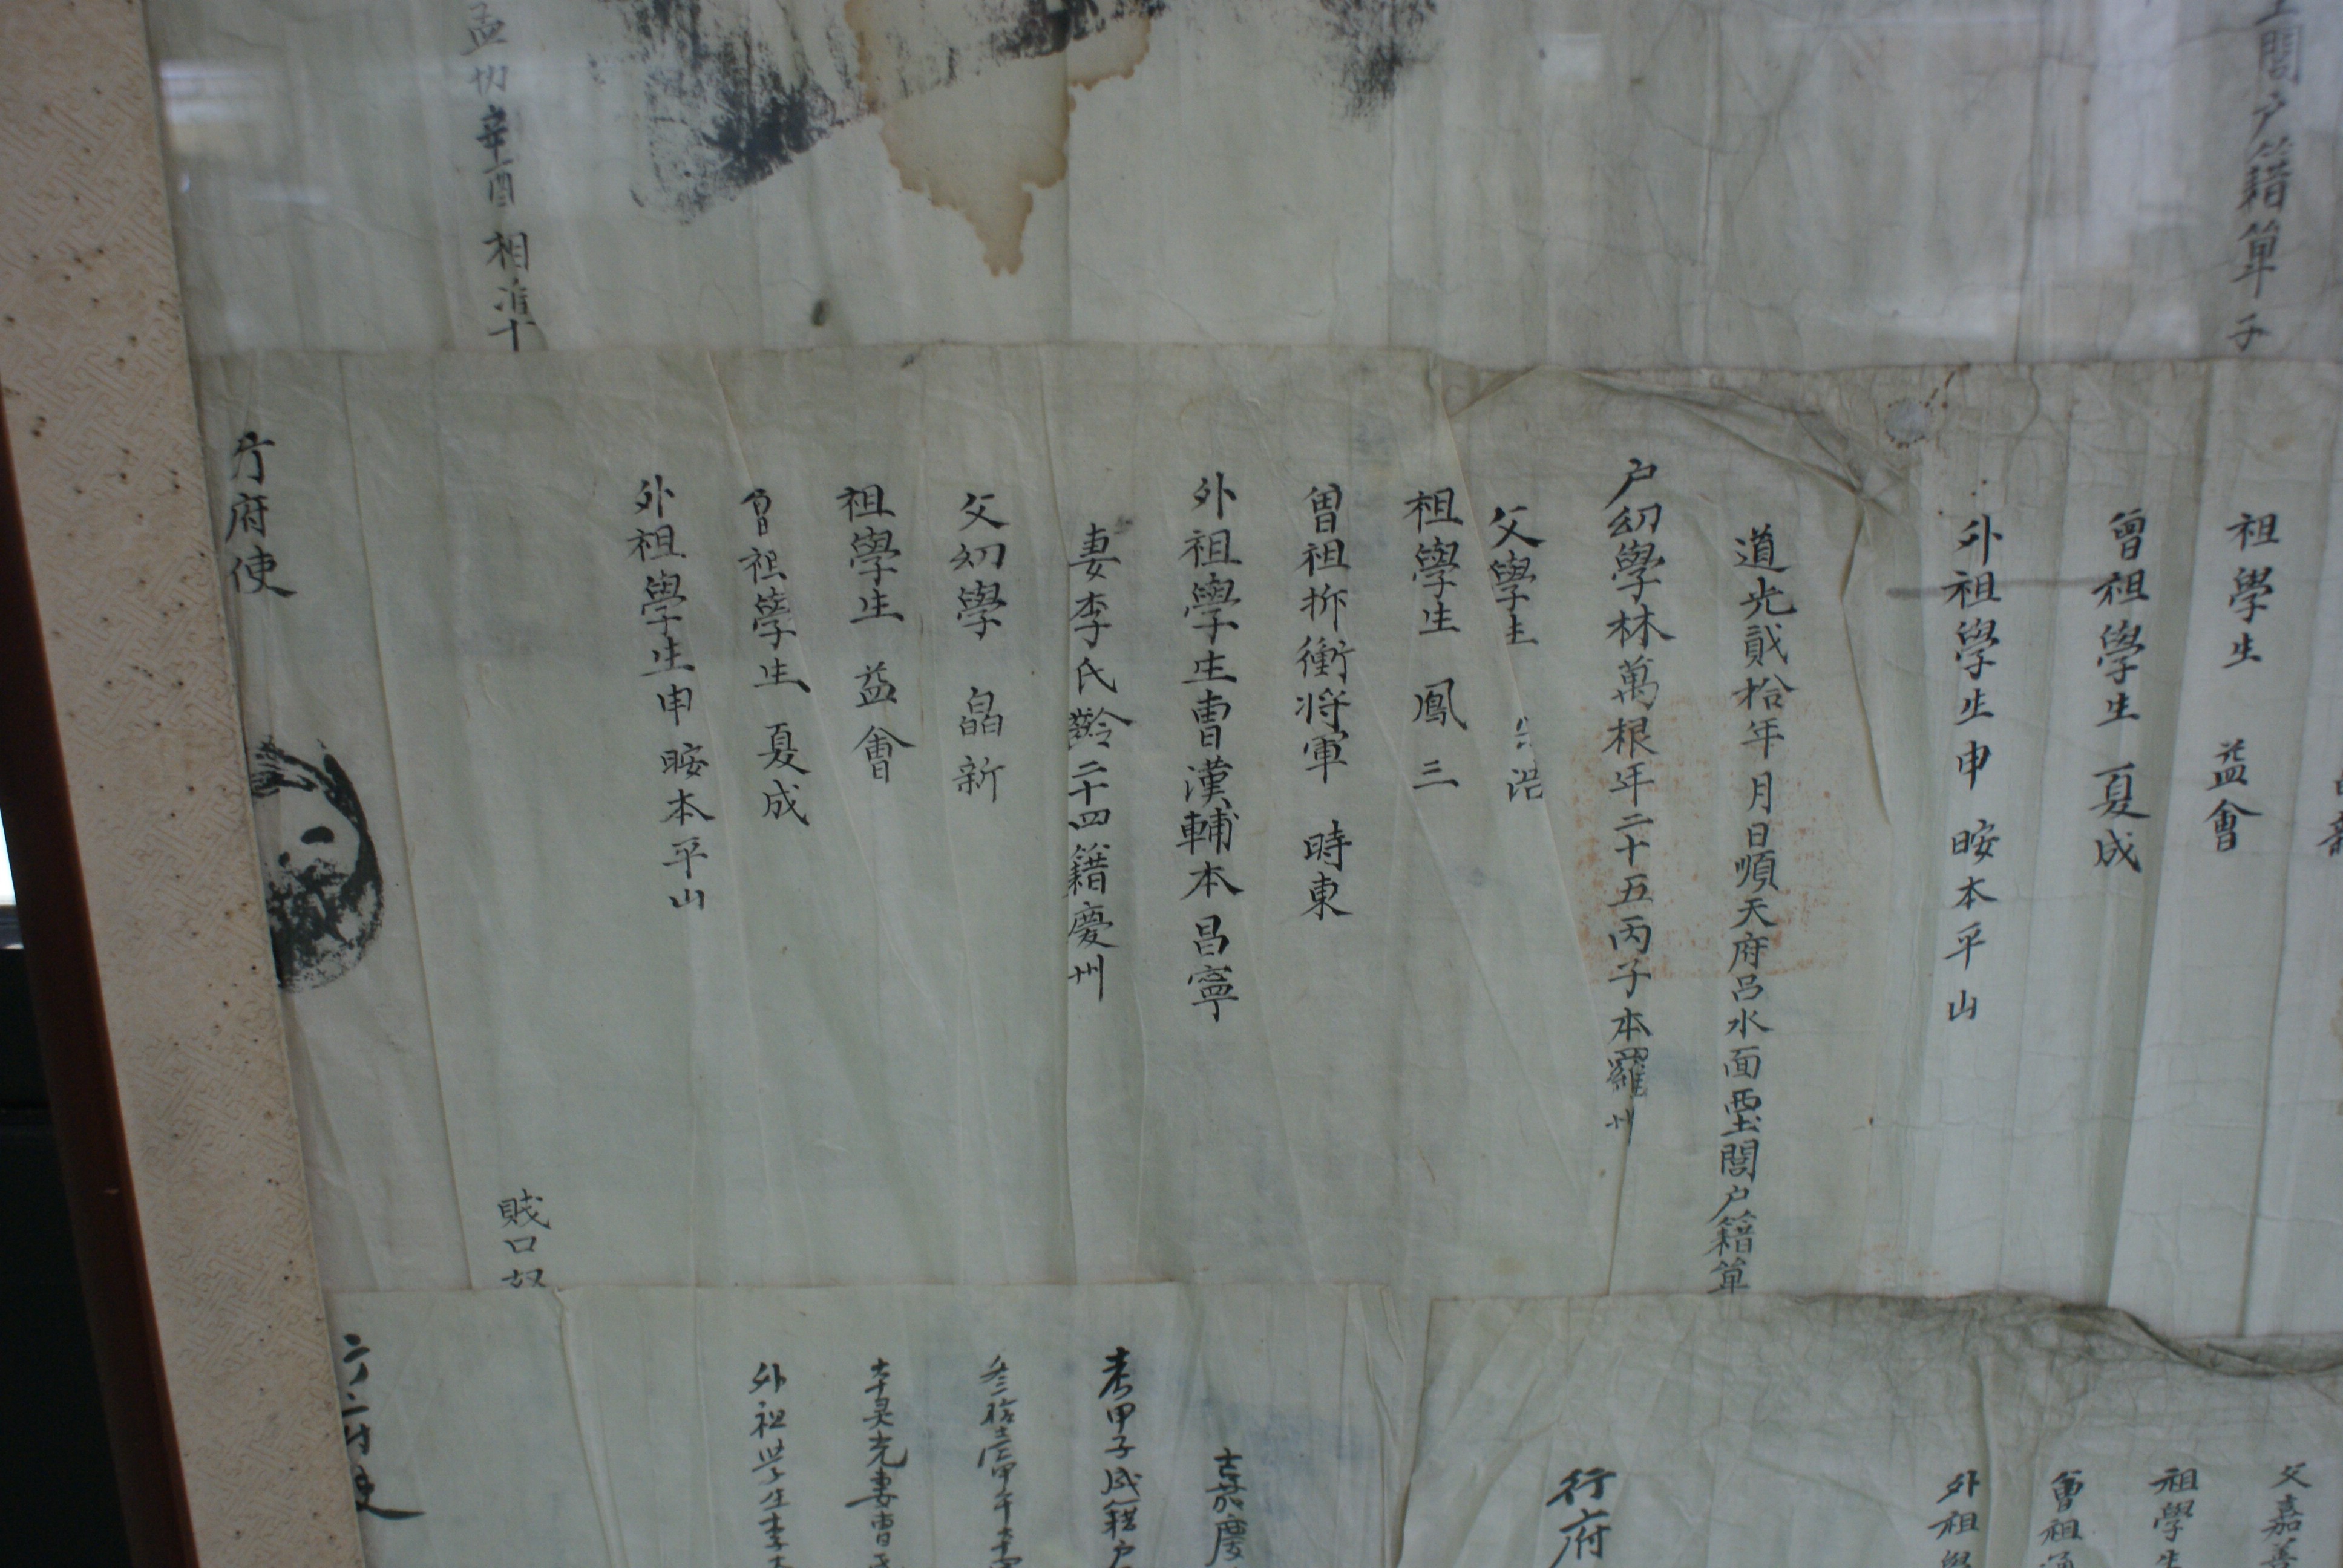 閭户籍單子
孟 切 辛酉 相準
祖學生 益會
曾祖學生 夏成
外祖學生申 晐本平山
道光貳拾年月日順天府呂水面垔閭户籍單
户幼學林萬根年二十五丙子本羅州
父學生 浩
祖學生 鳳三
曾祖折衝将軍 時東
外祖學生曺漢輔本昌寧
妻李氏齡二十四籍慶州
父幼學 皛新
祖學生 益會
曾祖學生 夏成
外祖學生申 晐本平山
賤口奴
行府使
父嘉善
祖學生
曾祖通
外祖學
行府
嘉慶
考甲子成籍户
外祖學生李